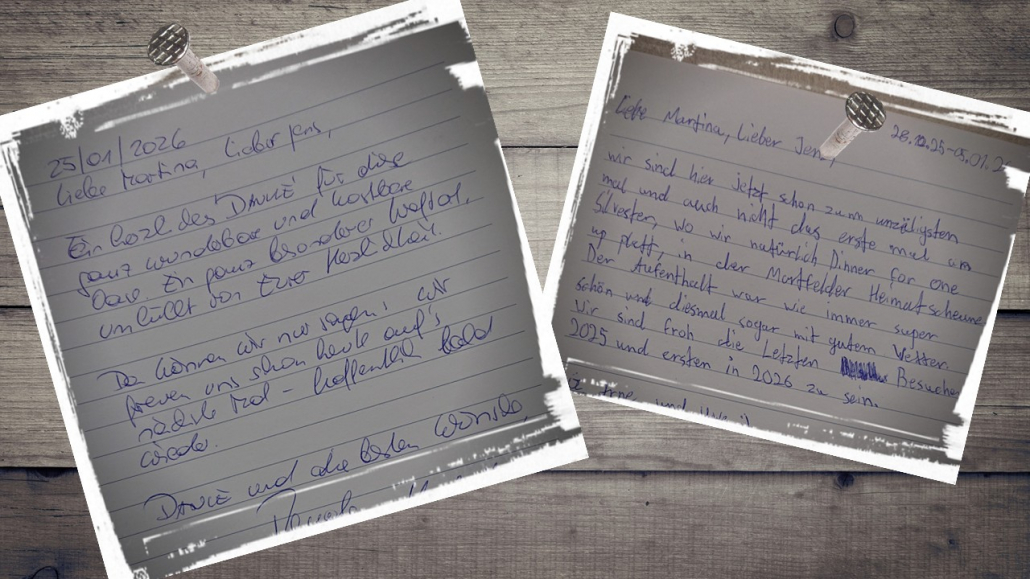 25/01/2026
Liebe Martina, Lieber Jens,
Ein herzliches 'DANKE' für diese
ganz wunderbare und kostbare
Oase. Ein ganz besonderer Wohlfühlort,
umhüllt von Eurer Herzlichkeit.
Da können wir nur sagen: wir
freuen uns schon heute auf's
nächste Mal - hoffentlich bald
wieder.
DANKE und die besten Wünsche,
Liebe Martina, Lieber Jens,
28.12.25-05.01.2
wir sind hier jetzt schon zum unzähligsten
mal und auch nicht das erste mal um
Silvester, wo wir natürlich Dinner for one
up platt, in der Martfelder Heimatscheune
Der Aufenthalt war wie immer super
schön und diesmal sogar mit gutem Wetter.
Wir sind froh die Letzten Besucher
2025 und ersten in 2026 zu sein.